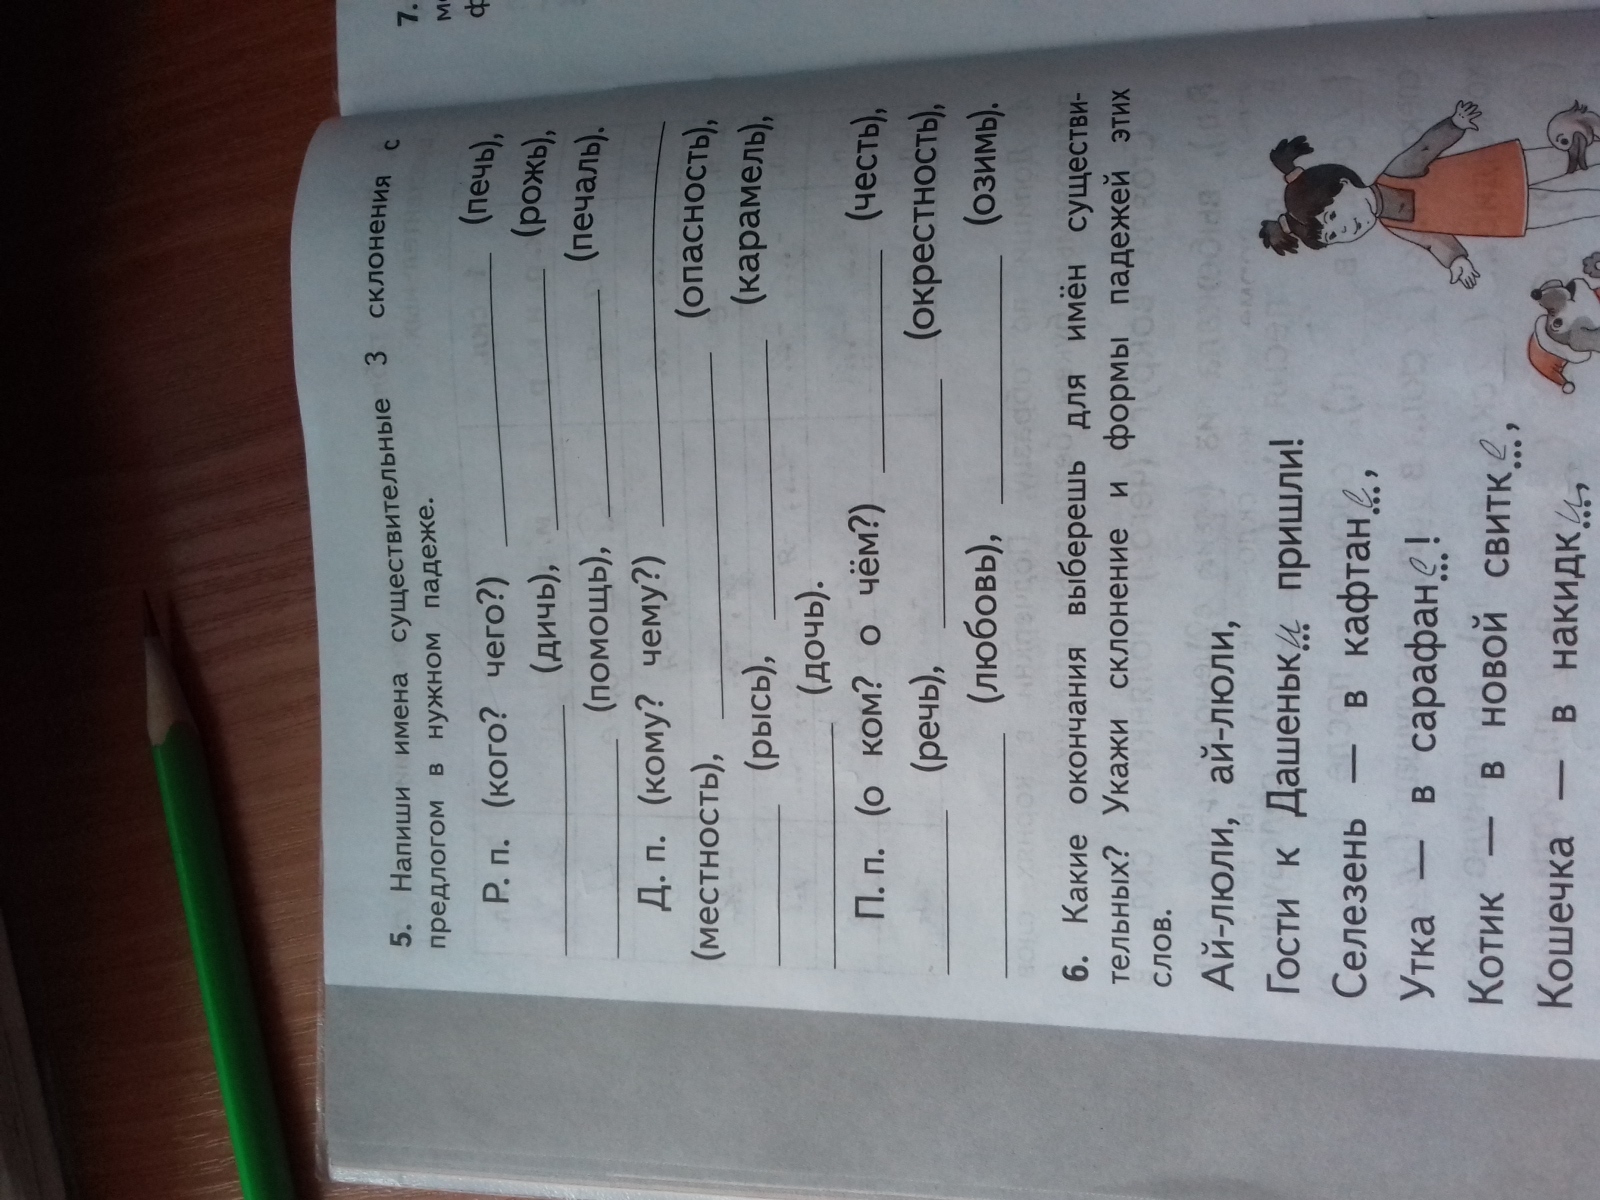 5. Напиши имена существительные 3 склонения с
предлогом в нужном падеже.
Р. п. (кого? чего?) ____________ (печь),
____________ (дичь), ____________ (рожь),
____________ (помощь), ____________ (печаль).
Д. п. (кому? чему?) ____________
(местность), ____________ (опасность),
____________ (рысь), ____________ (карамель),
____________ (дочь).
П. п. (о ком? о чём?) ____________ (честь),
____________ (речь), ____________ (окрестность),
____________ (любовь), ____________ (озимь).
6. Какие окончания выберешь для имён существи-
тельных? Укажи склонение и формы падежей этих
слов.
Ай-люли, ай-люли,
Гости к Дашеньки пришли!
Селезень — в кафтане,
Утка — в сарафане!
Котик — в новой свитке,
Кошечка — в накидки,
7.